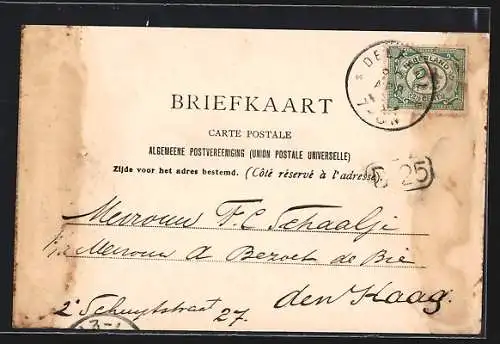 BRIEFKAART
CARTE POSTALE
ALGEMEENE POSTVEREENIGING (UNION POSTALE UNIVERSELLE)
Zijde voor het adres bestemd. (Côté réservé à l'adresse)
NEDERLAND
DEL
25
Mevrouw F. C. Schaalje
Mevrouw de Bezoet de Bie
2e Schuytstraat 27.
den Haag.